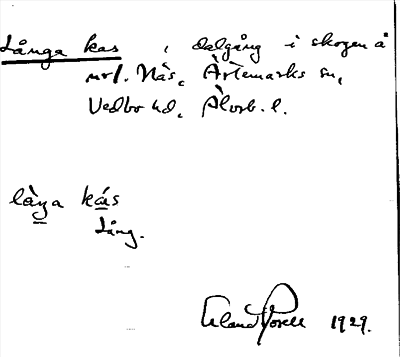 Långa kas, dalgång i skogen å
mrl. Näs, Ärtemarks sn,
Vedbo hd, Älvsb. l.
làŋa kás
Lång.
Erland Rosell 1929.